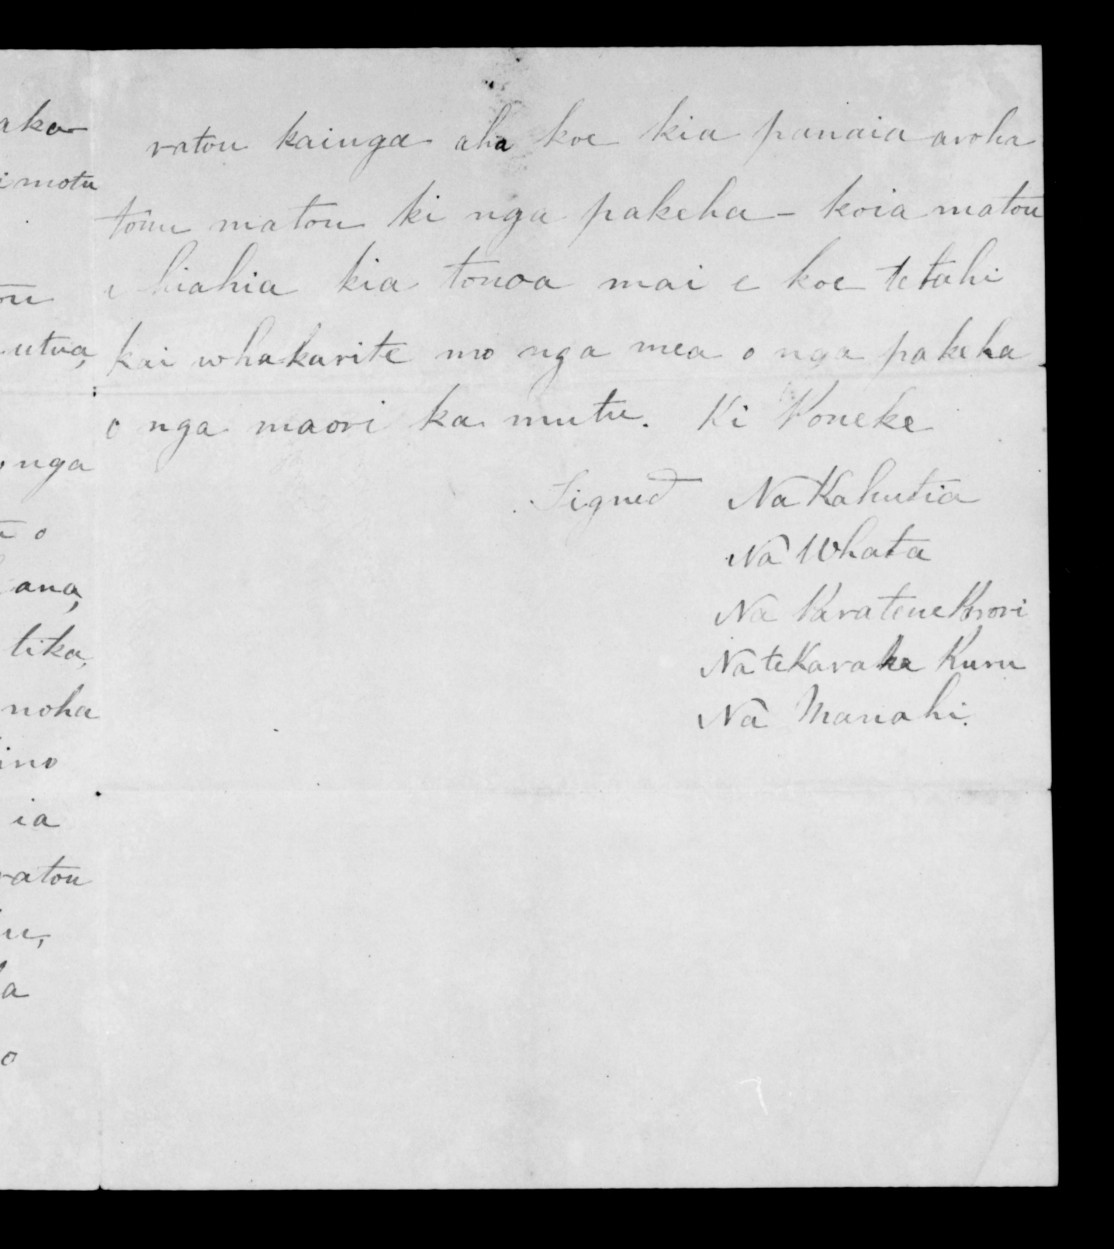 aka
imotu
ou
utua,
o nga
a o
ana,
tika,
noha
ino
ia
ratou
hu,
a
o
ratou kainga aha koe kia panaia aroha
tonu matou ki nga pakeha - koia matou
e hiahia kia tonoa mai e koe tetahi
kai whakarite mo nga mea o nga pakeha
o nga maori ka mutu. Ki Poneke
Signed Na Kahutia
Na Whata
Na Karatene
Na te Karaka Kuru
Na Manahi.